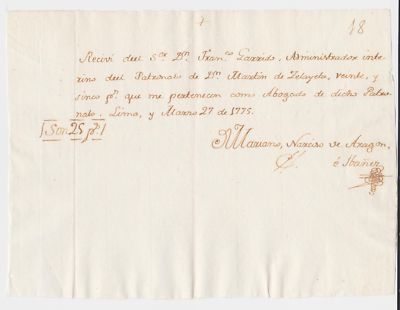 18
Recivi del S.or D.n Fran.co Garrido, Administrador inte
rino del Patronato de D.n Martin de Zelayeta, veinte, y
sinco p.s que me pertenecen como Abogado de dicho Patro
nato. Lima, y Marzo 27 de 1775.
Son 25 p.s
Mariano, Narciso de Aragon,
é Ibañez